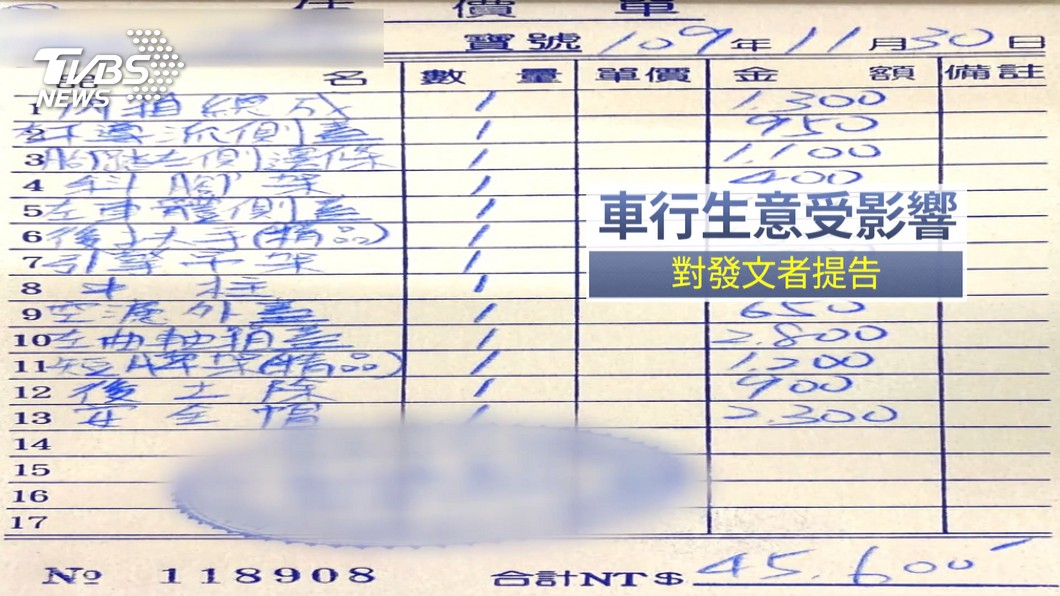 估價單
TVBS NEWS
寶號 109年11月30日
品名 數量 單價 金額 備註
1 內箱總成 1 1,300
2 導流側蓋 1 950
3 腳踏左側邊條 1 1,100
4 斜腳架 1 400
5 左車體側蓋 1
車行生意受影響
6 後扶手(精品) 1
7 引擎吊架 1
對發文者提告
8 中柱 1
9 空濾外蓋 1 650
10 左曲軸箱蓋 1 2.800
11 短牌架(精品) 1 1.200
12 後土除 1 900
13 安全帽 1 2.300
14
15
16
17
№ 118908 合計NT$ 45.600